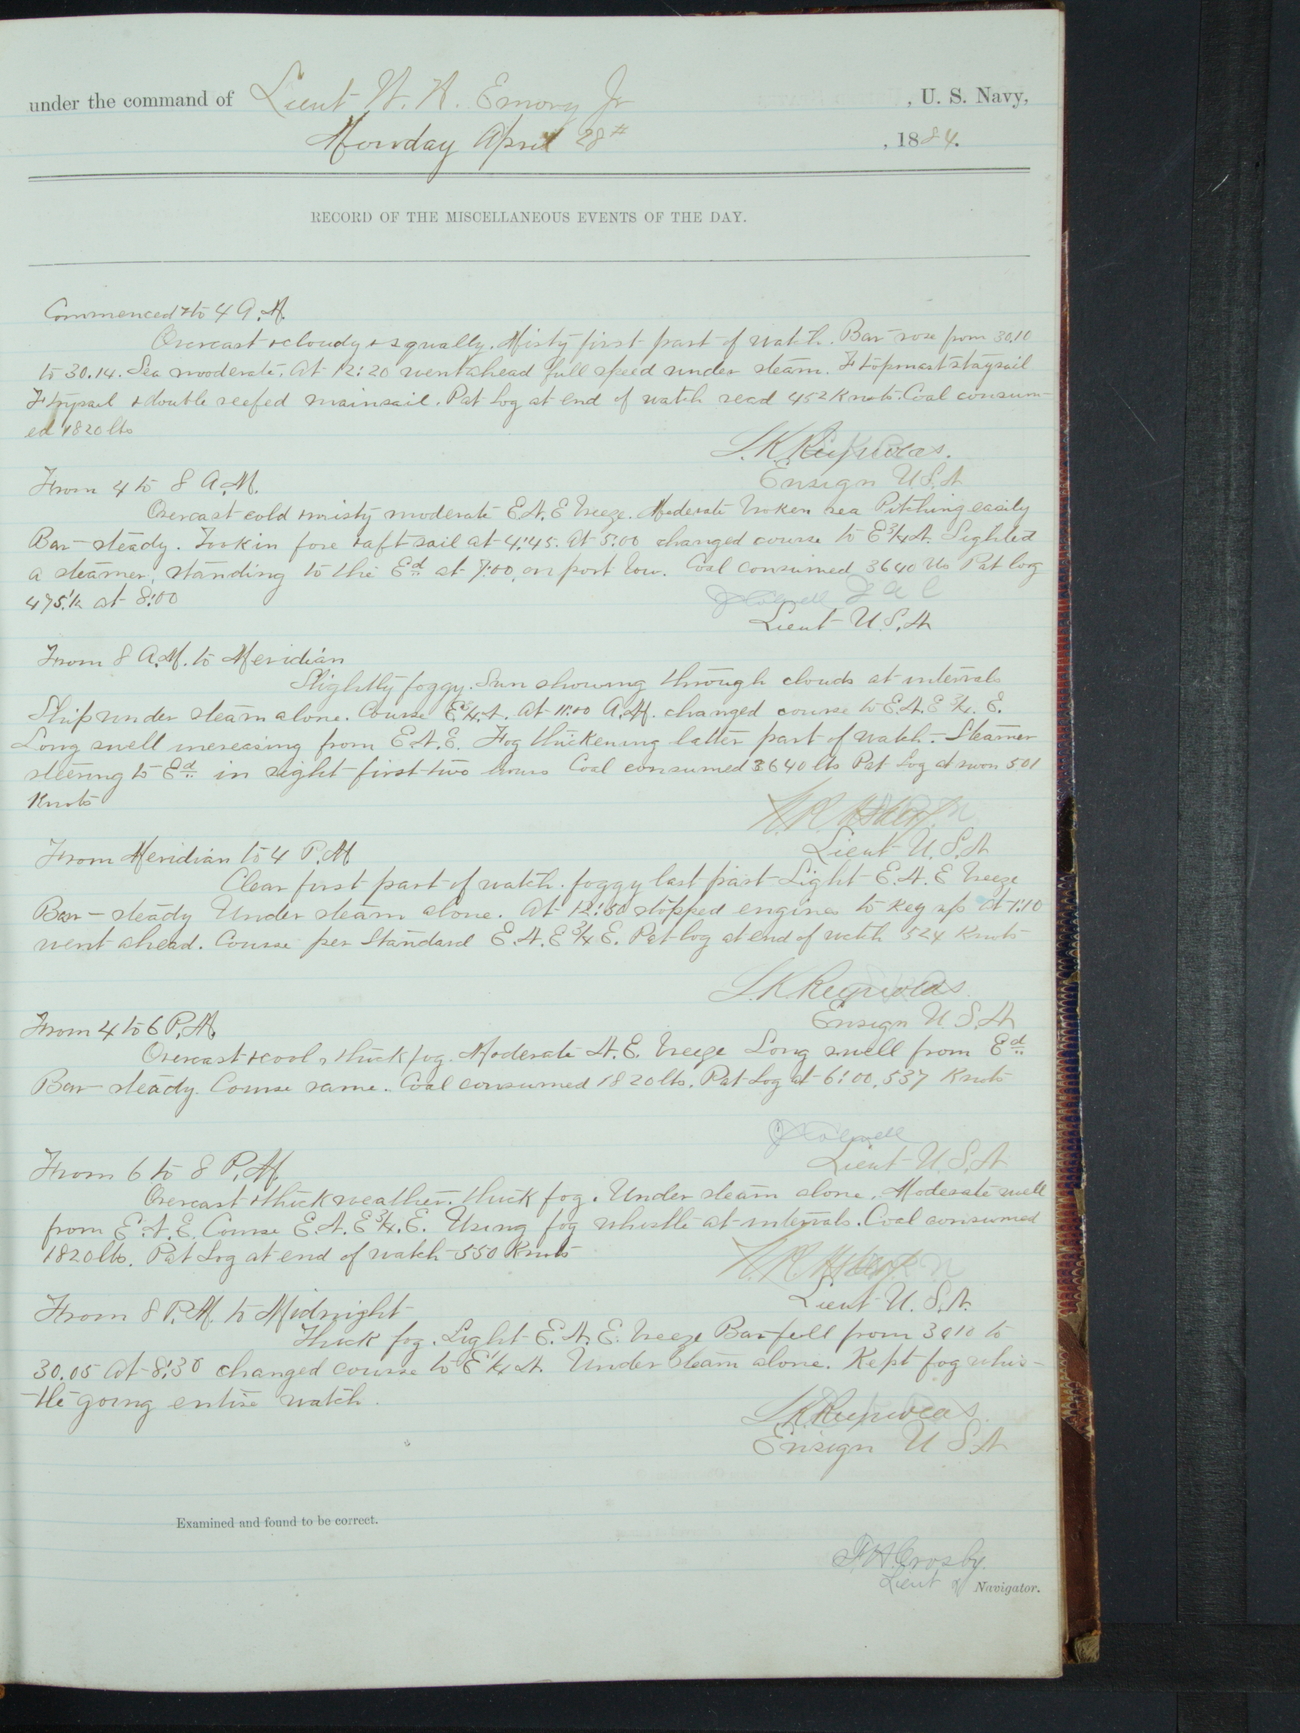 under the command of Lieut W. H. Emory Jr , U. S. Navy,
Monday April 28th , 1884.
RECORD OF THE MISCELLANEOUS EVENTS OF THE DAY.
Commenced & to 4 A.M.
Overcast & cloudy & squally. Misty first part of watch. Bar rose from 30.10
to 30.14. Sea moderate. At 12:20 went ahead full speed under steam. F topmast staysail
F trysail & double reefed mainsail. Pat Log at end of watch read 452 Knots. Coal consum-
ed 1820 lbs
L.K. Reynolds.
Ensign U.S.N
From 4 to 8 A.M.
Overcast cold & misty moderate E.N.E breeze. Moderate broken sea Pitching easily
Bar steady. Took in fore & aft sail at 4:45. At 5:00 changed course to E 3/4 N. Sighted
a steamer, standing to the Ed at 7:00, on port bow. Coal consumed 3640 lbs Pat log
475.½ at 8:00
J Colwell
Lieut U.S.N
From 8 A.M. to Meridian
Slightly foggy. Sun showing through clouds at intervals
Ship under steam alone. Course E 3/4 N. At 11:00 A.M. changed course to E.N.E 3/4 E.
Long swell increasing from E.N.E. Fog thickening latter part of watch. Steamer
steering to Ed in sight first two hours Coal consumed 3640 lbs Pat Log at noon 501
Knots
Lieut U.S.N
From Meridian to 4 P.M
Clear first part of watch. foggy last part Light E.N.E breeze
Bar steady Under steam alone. At 12:50 stopped engines to key up At 1:10
went ahead. Course per Standard E.N.E 3/4 E. Pat log at end of watch 524 Knots
L.K. Reynolds.
Ensign U.S.N
From 4 to 6 P.M.
Overcast & cool, thick fog. Moderate N.E. breeze Long swell from Ed
Bar steady. Course same. Coal consumed 1820 lbs. Pat Log at 6:00, 537 Knots
J Colwell
Lieut U.S.N
From 6 to 8 P.M.
Overcast & thick weather. thick fog. Under steam alone. Moderate swell
from E.N.E. Course E.N.E 3/4 E. Using fog whistle at intervals. Coal consumed
1820 lbs. Pat Log at end of watch 550 Knots
Lieut U.S.N.
From 8 P.M. to Midnight
Thick fog. Light E.N.E. breeze Bar fell from 3010 to
30.05 At 8:30 changed course to E 1/4 N. Under steam alone. Kept fog whis-
tle going entire watch.
L.K. Reynolds.
Ensign U.S.N
Examined and found to be correct.
F.H. Crosby.
Lieut & Navigator.